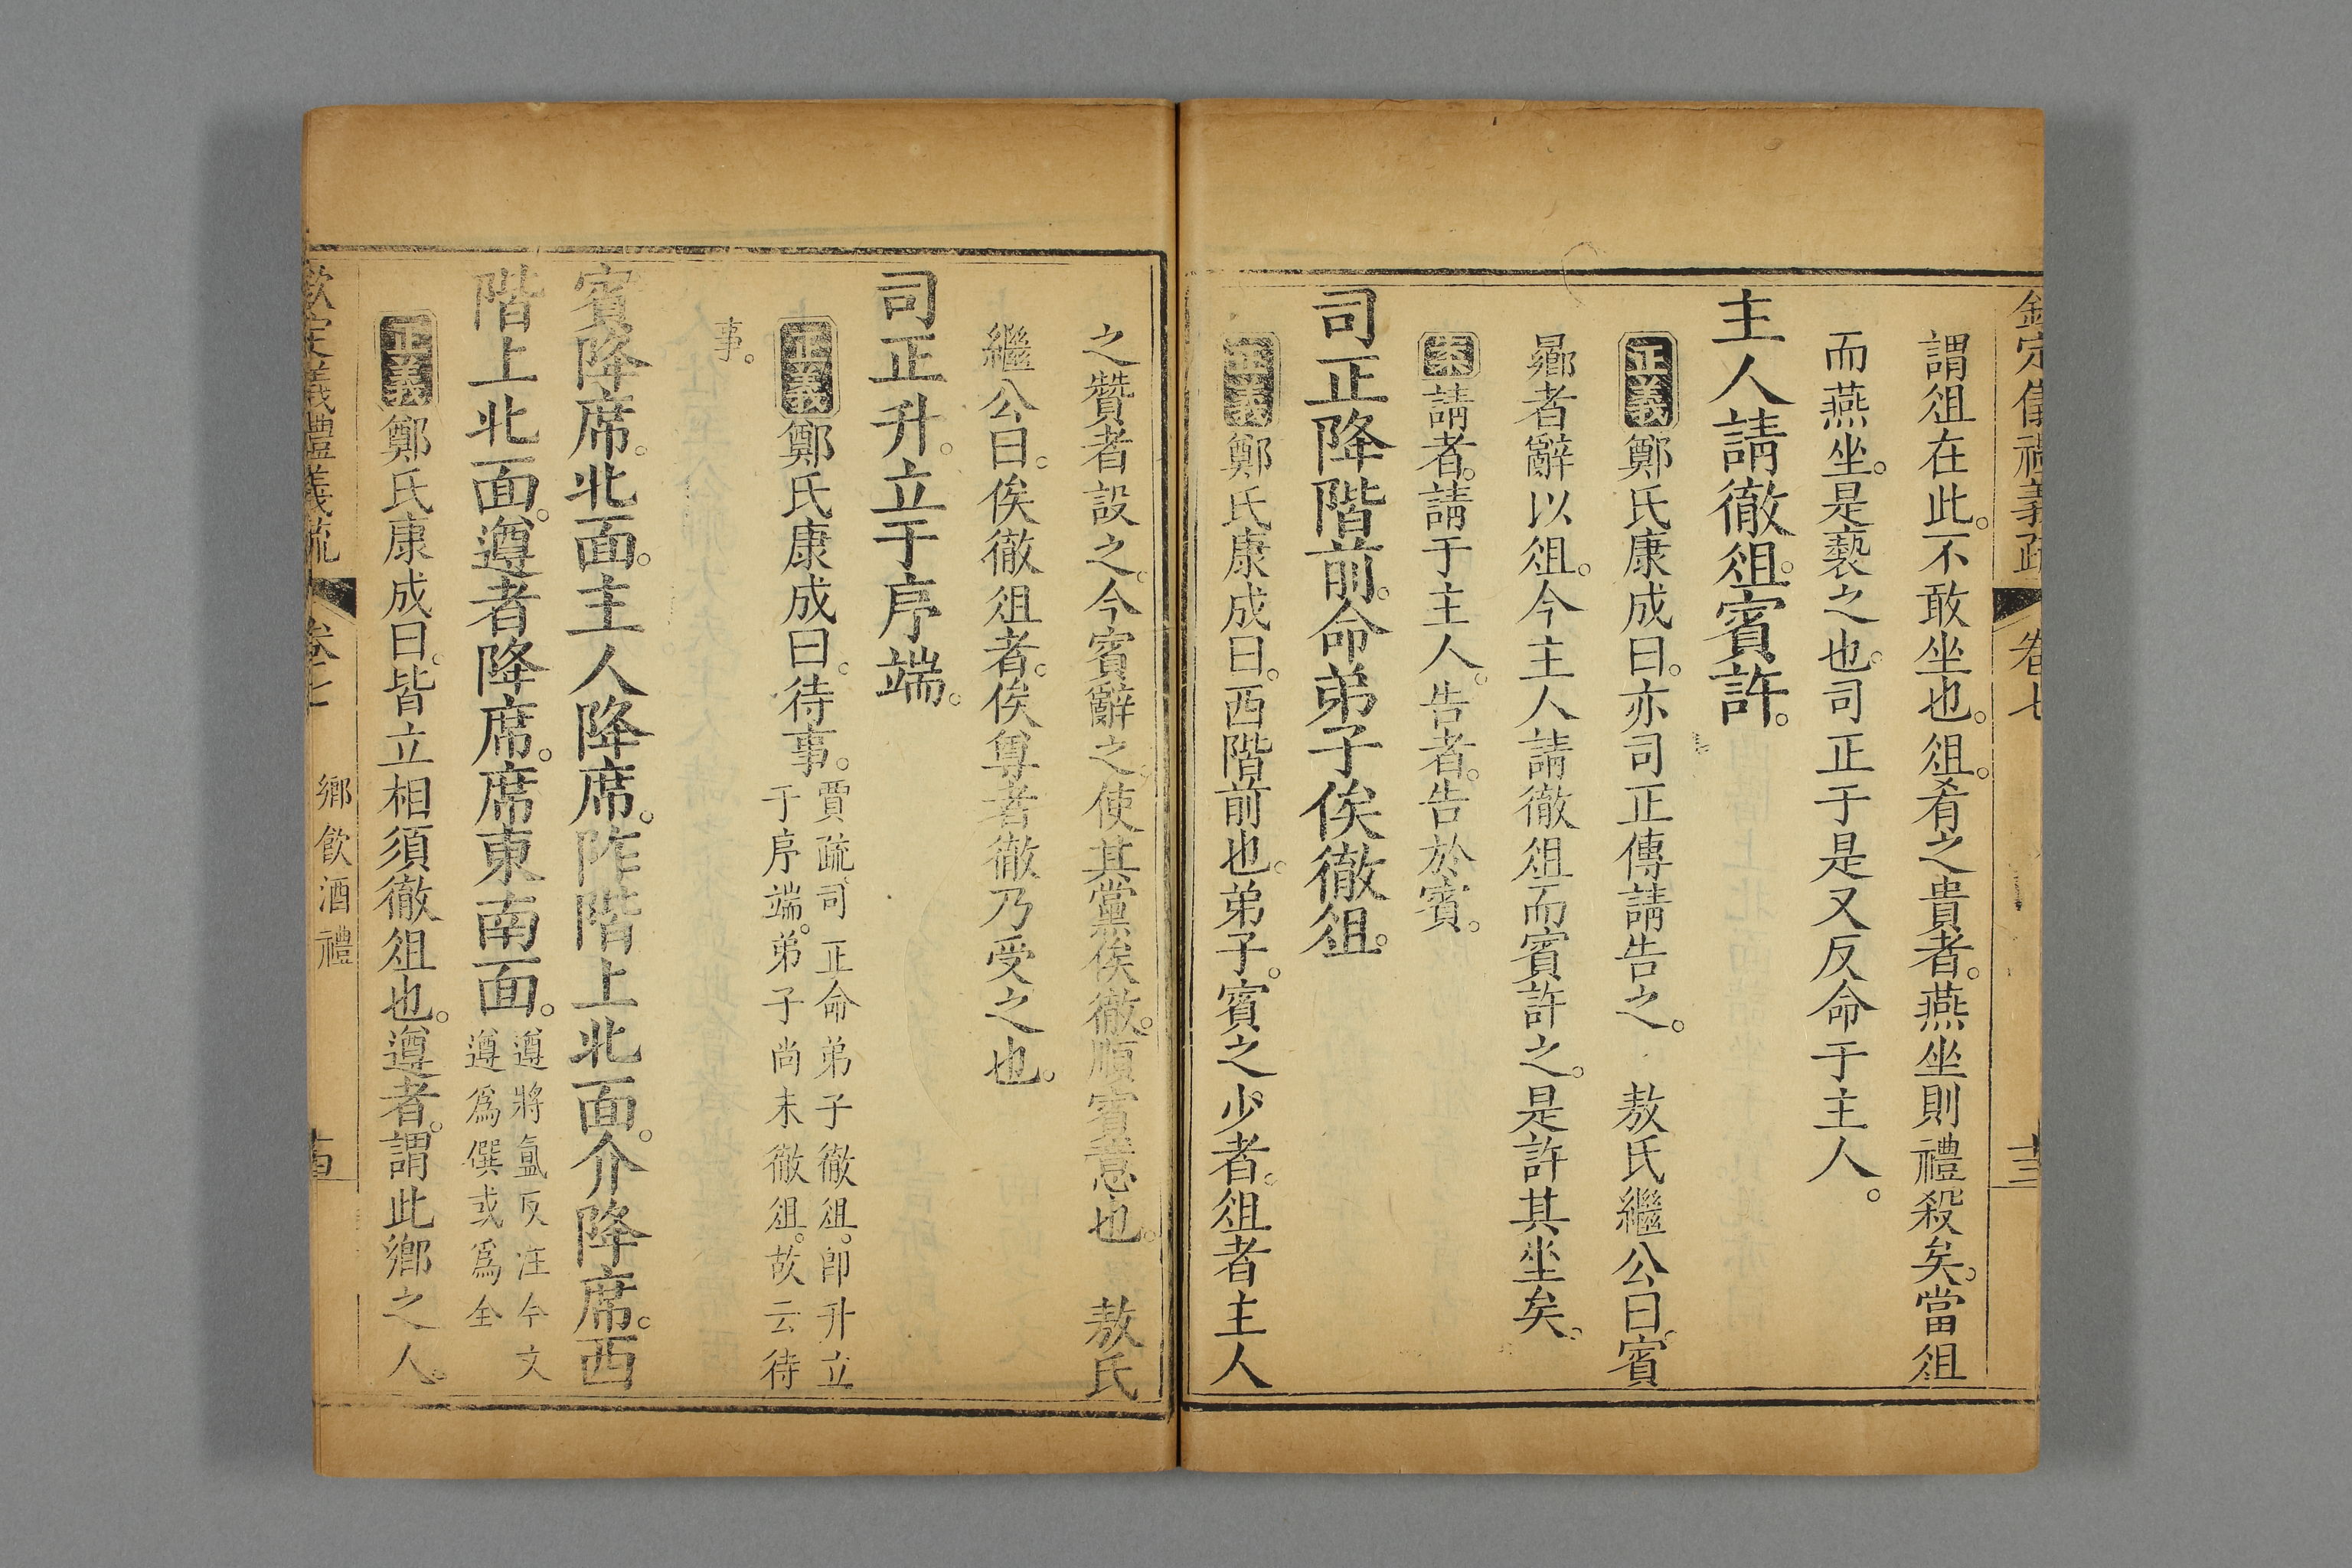 欽定儀禮義疏 卷七 十三
謂俎在此。不敢坐也。俎。肴之貴者。燕坐則禮殺矣。當俎
而燕坐。是褻之也。司正于是又反命于主人。
主人請徹俎。賓許。
正義鄭氏康成曰。亦司正傳請告之。 敖氏繼公曰。賓
曏者辭以俎。今主人請徹俎而賓許之。是許其坐矣。
案請者。請于主人。告者。告於賓。
司正降階前。命弟子俟徹俎。
正義鄭氏康成曰。西階前也。弟子。賓之少者。俎者主人
之贊者設之。今賓辭之。使其黨俟徹。順賓意也。 敖氏
繼公曰。俟徹俎者。俟尊者徹乃受之也。
司正升。立于序端。
正義鄭氏康成曰。待事。賈疏。司正命弟子徹俎。卽升立
于序端。弟子尚未徹俎。故云待
事。
賓降席。北面。主人降席。阼階上北面。介降席。西
階上北面。遵者降席。席東南面。遵將㒰反注今文
遵爲僎或爲全
正義鄭氏康成曰。皆立相須徹俎也。遵者。謂此鄉之人。
欽定儀禮義疏 卷七 鄉飲酒禮